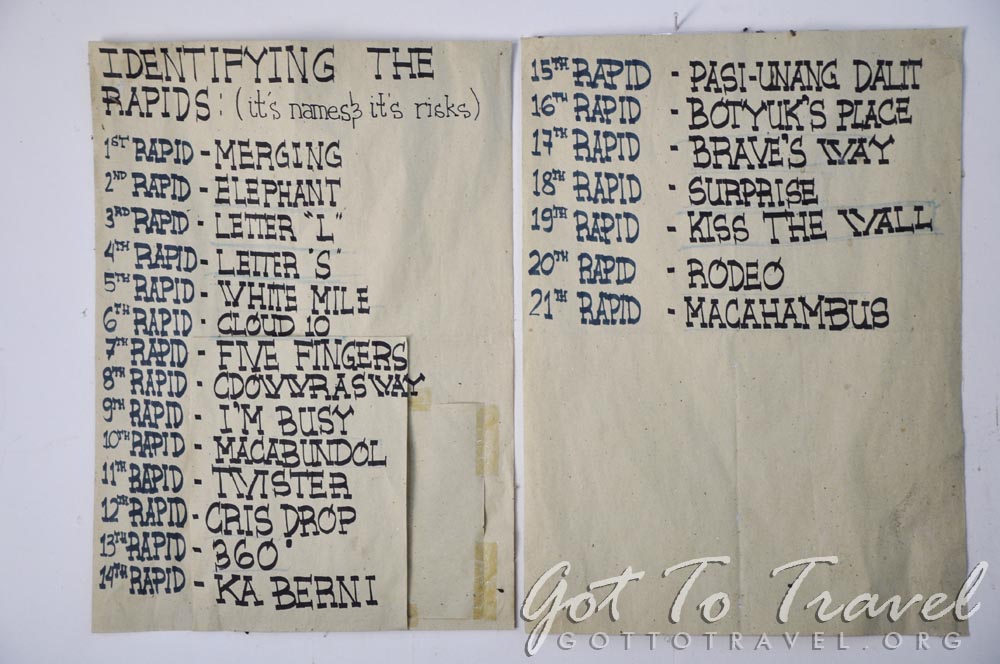 IDENTIFYING THE
RAPIDS: (it's names & it's risks)
1ST RAPID - MERGING
2ND RAPID - ELEPHANT
3RD RAPID - LETTER "L"
4TH RAPID - LETTER "S"
5TH RAPID - WHITE MILE
6TH RAPID - CLOUD 10
7TH RAPID - FIVE FINGERS
8TH RAPID - CDOWRASWAY
9TH RAPID - I'M BUSY
10TH RAPID - MACABUNDOL
11TH RAPID - TWISTER
12TH RAPID - CRIS DROP
13TH RAPID - 360°
14TH RAPID - KA BERNI
15TH RAPID - PASI-UNANG DALIT
16TH RAPID - BOTYUK'S PLACE
17TH RAPID - BRAVE'S WAY
18TH RAPID - SURPRISE
19TH RAPID - KISS THE WALL
20TH RAPID - RODEO
21TH RAPID - MACAHAMBUS
Got To Travel
GOTTOTRAVEL.ORG